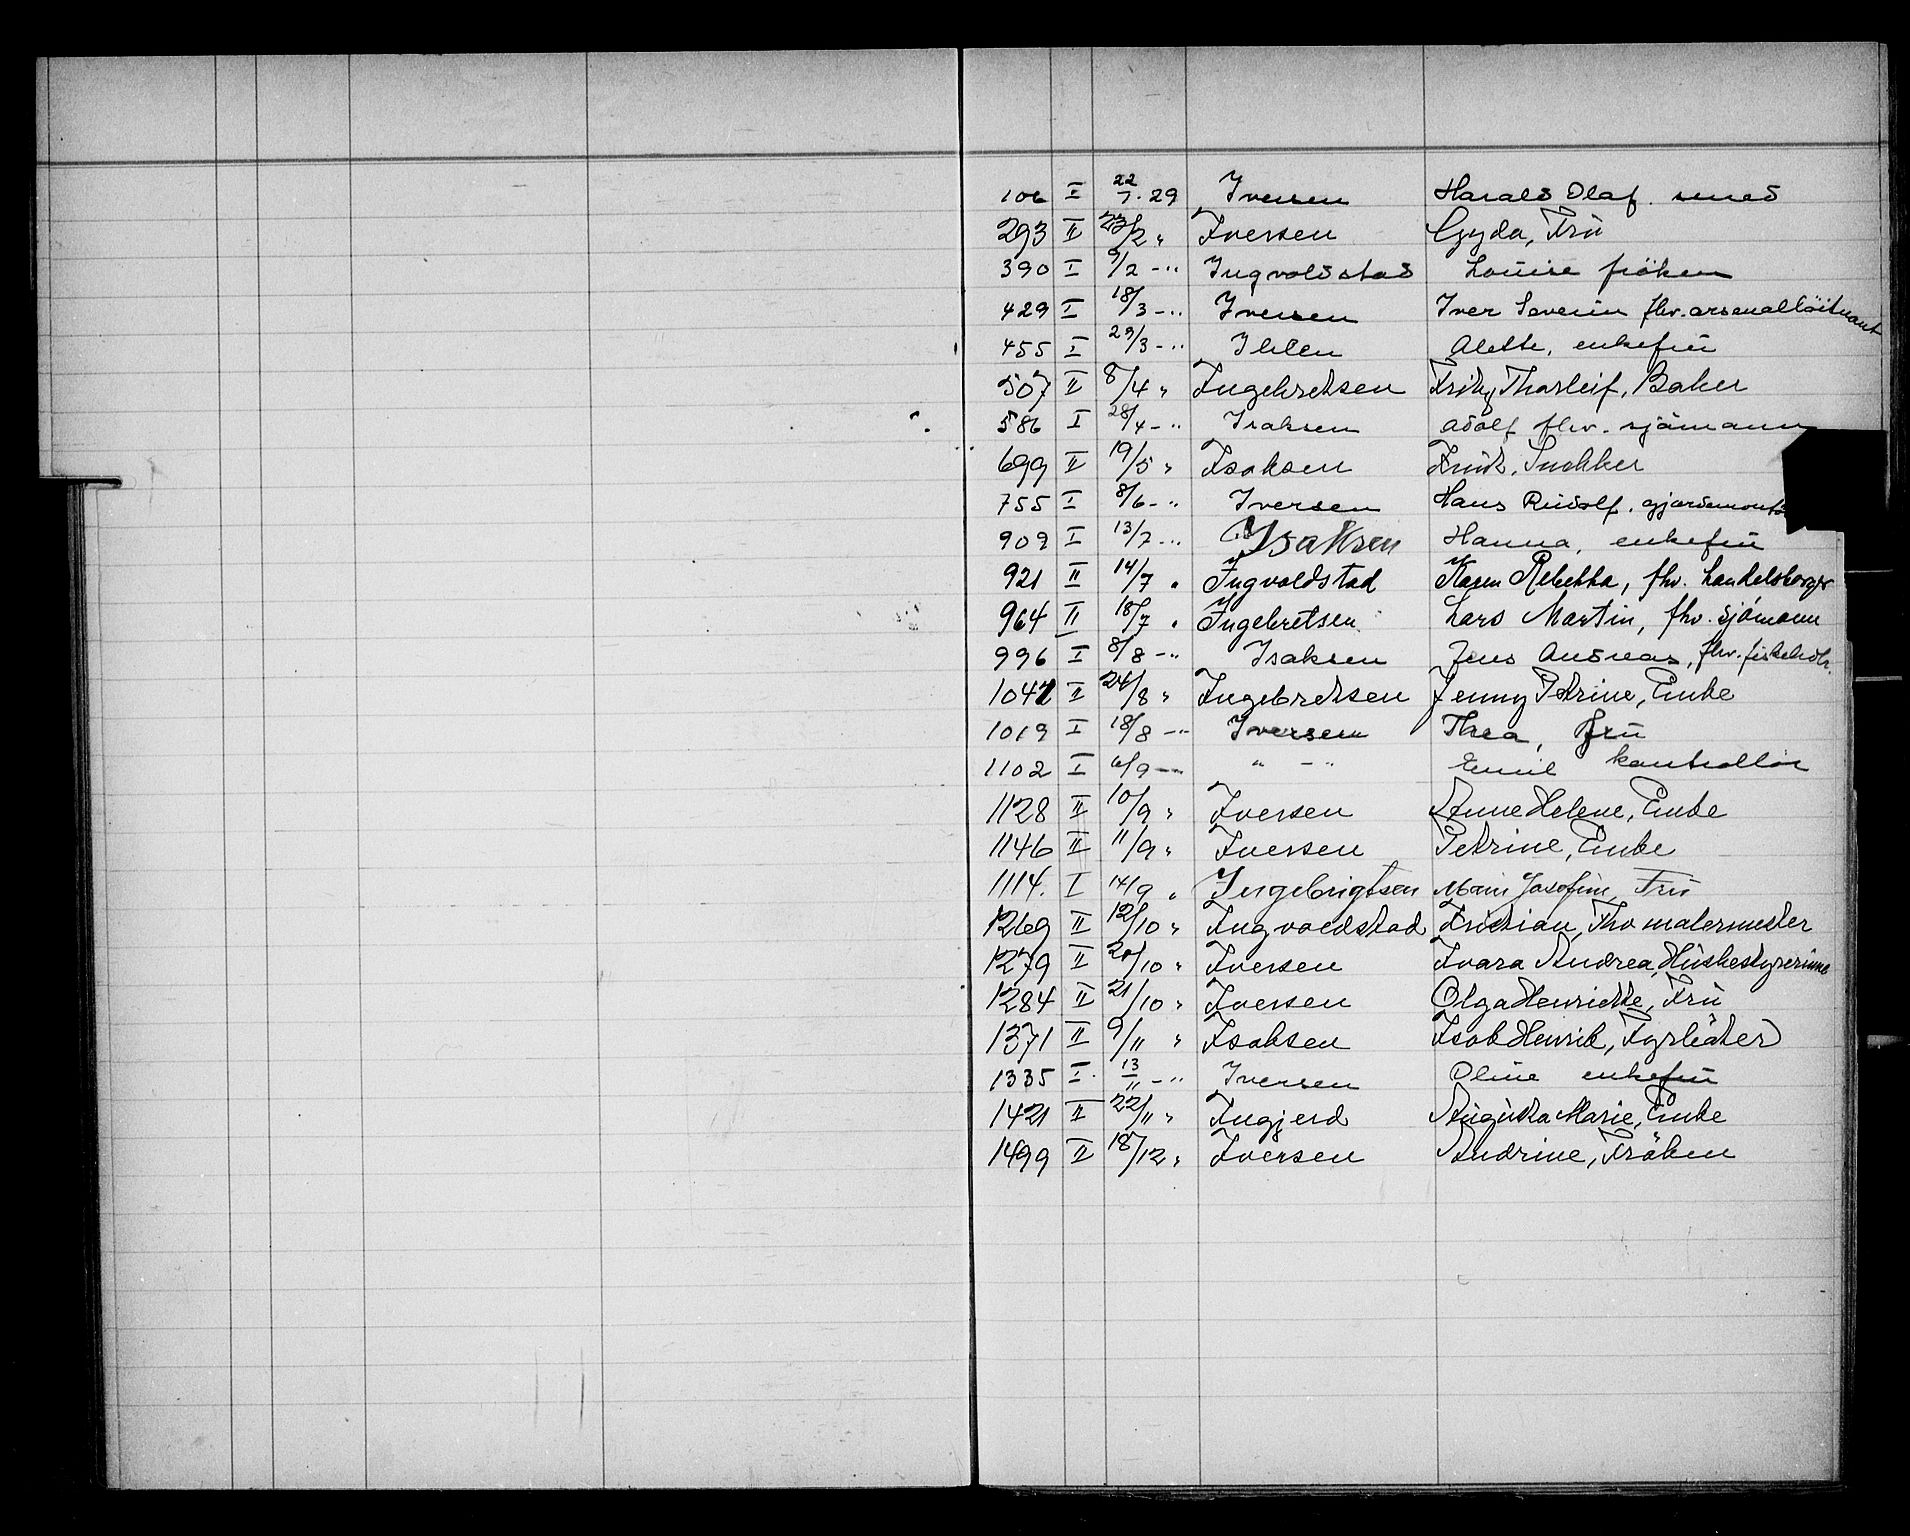 106 I 22/1.29 Iversen Harald Olaf. smed
293 II 23/2 " Iversen Gyda, Frü
390 I 9/2 -" Ingvoldstad Louise fröken
429 I 18/3 -" Iversen Iver Severin fhv. arsenallöitnant
455 I 29/3 -" Ihlen Alette, enkefrü
507 II 8/4 " Ingebretsen Tharleif, Baker
586 I 28/4 -" Isaksen Adolf fhv. sjömann
699 II 19/5 " Isaksen Snekker
755 I 8/6 -" Iversen Hans Rudolf.
909 I 13/7 -" Isaksen Hanna, enkefrü
921 II 14/7 " Ingvoldstad Karen Rebekka, fhv. handelsborger
964 II 18/7 " Ingebretsen Lars Martin, fhv. sjömann
996 I 8/8 -" Isaksen Jens Andreas, fhv. fiskehdlr.
1042 II 24/8 " Ingebretsen Jenny Petrine, Enke
1019 I 18/8 -" Iversen Thea, frü
1102 I 6/9 -" " - " Emil kontrollör
1128 II 10/9 " Iversen Anne Helene, Enke
1146 II 11/9 " Iversen Petrine, Enke
1114. I 14/9 " Ingebrigtsen Marie Josefine Frü
1269 II 12/10 " Ingvoldstad Kristian, Fhv malermester
1279 II 20/10 " Iversen Ivara Andrea, Hüsbestyrerinne
1284 II 21/10 " Iversen Olga Henriette, Frü
1371 II 9/11 " Isaksen Isak Henrik, Fyrböter
1335 I 13/11 -" Iversen Oline enkefrü
1421 II 22/11 " Ingjerd Augusta Marie, Enke
1499 II 18/12 " Iversen Andrine, Fröken